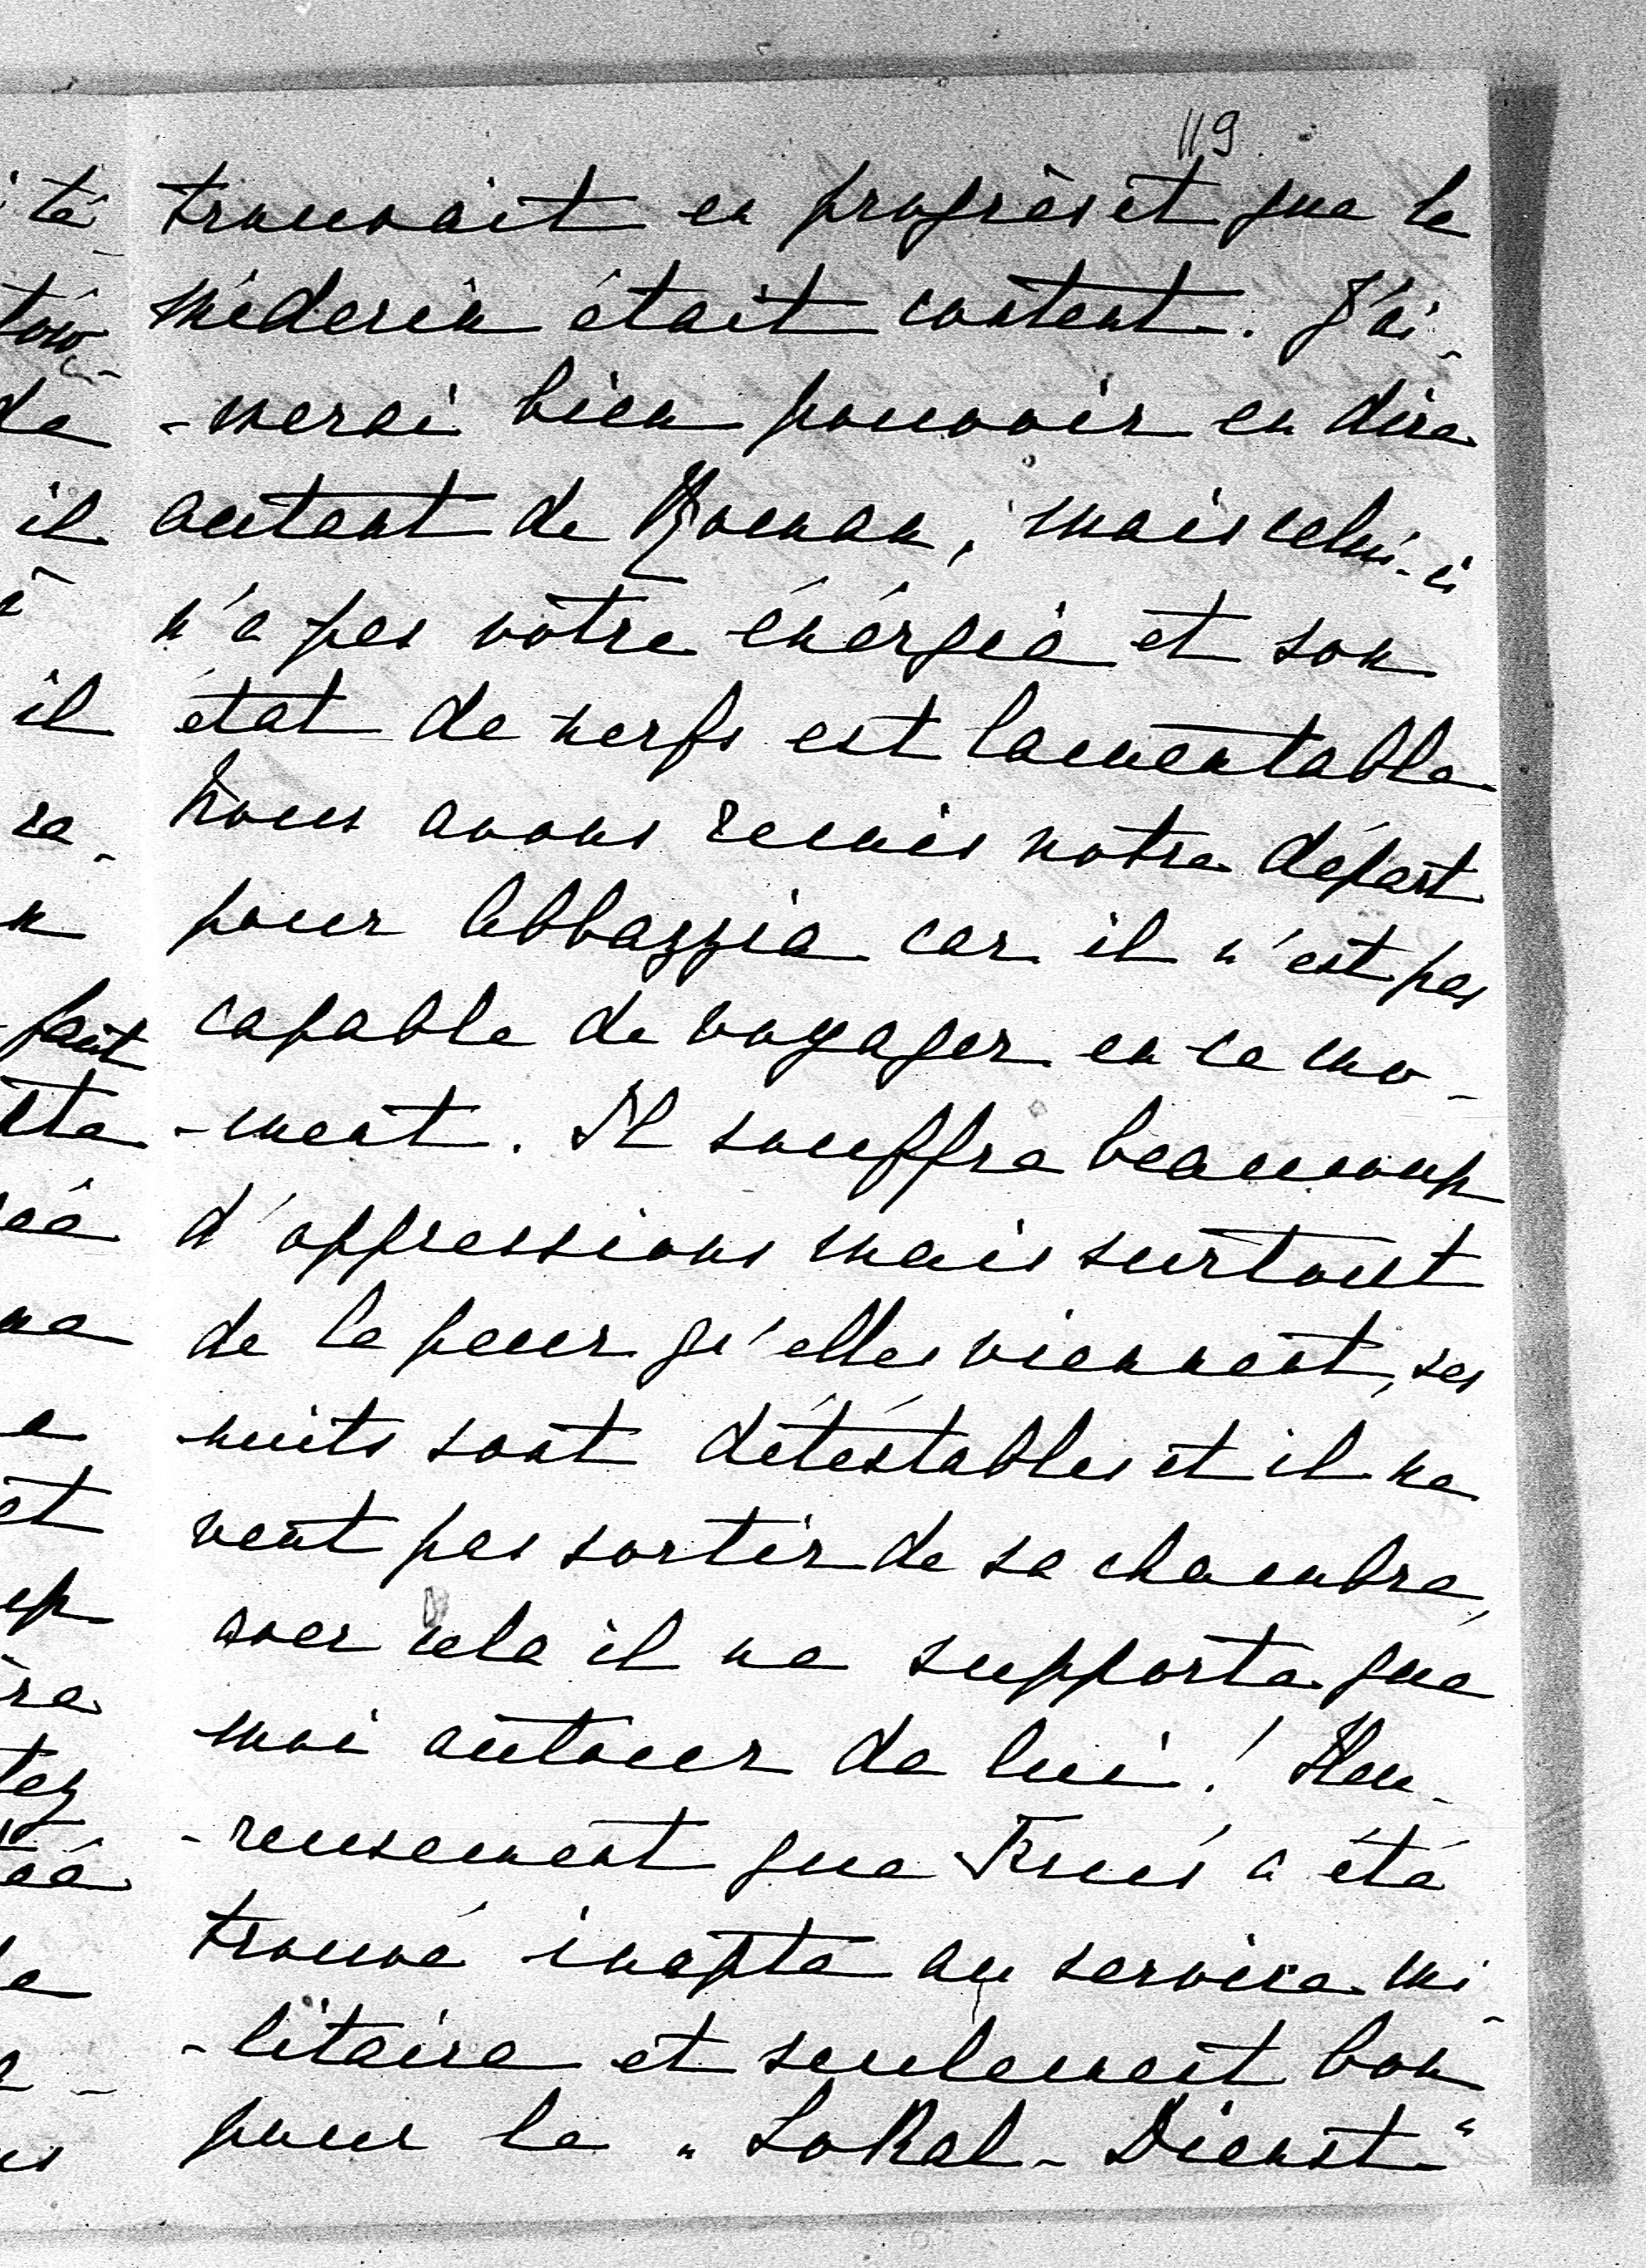 119
trouvait en progrès et que le
médecin était content. J'ai-
-merai bien pouvoir en dire
autant de Roman, mais celui-ci
n'a pas votre énérgie et son
état de nerfs est lamentable
Nous avons remis notre départ
pour Abbazzia car il n'est pas
capable de voyager en ce mo-
-ment. Il souffre beaucoup
d'oppressions mais surtout
de la peur qu'elles viennent, ses
nuits sont détéstables et il ne
veut pas sortir de sa chambre,
avec cela il ne supporte que
moi autour de lui! Heu-
-reusement que a été
trouvé inapte au service mi-
-litaire et seulement bon
pour le „Lokal-Dienst“